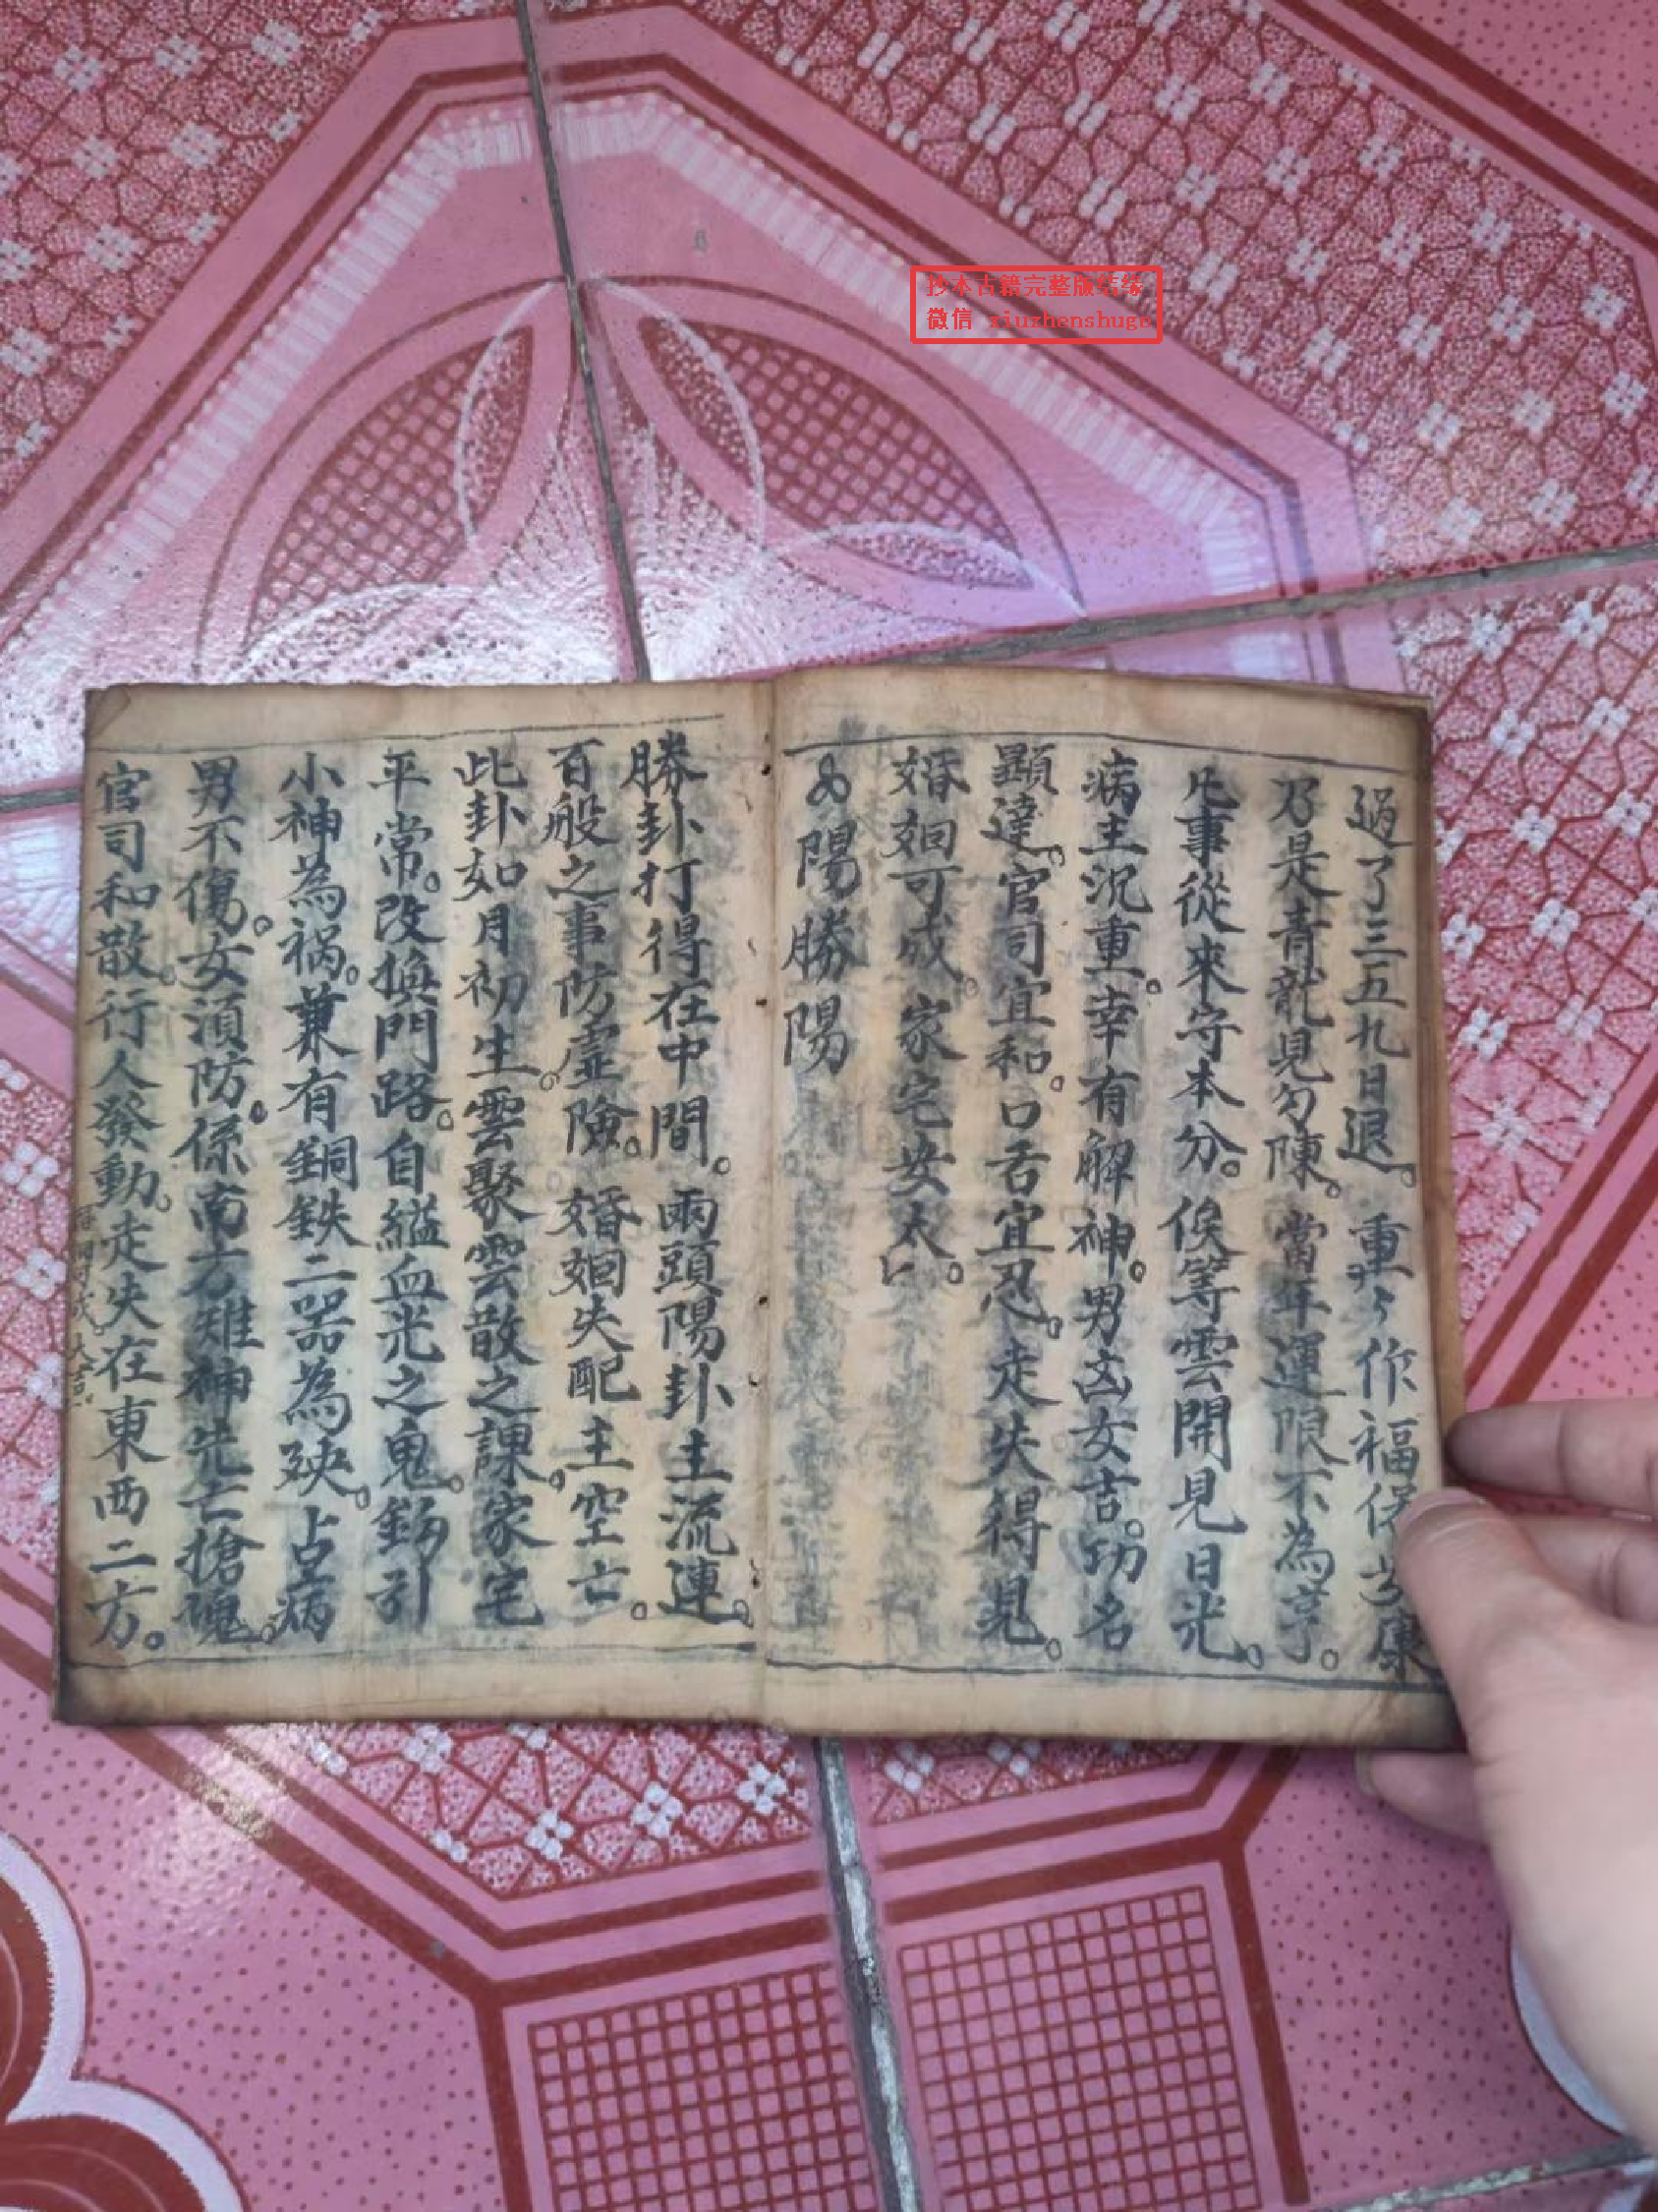 抄本古籍完整版结缘
微信 xiuzhenshuge
過了三五九日退。重々作福保安康
乃是青龍見勾陳。當年運限不為亨。
凢事從來守本分。候等雲開見日光。
病主沉重。幸有解神。男凶女吉。功名
顯達。官司宜和。口舌宜忍。走失得見。
婚姻可成。家宅安太。
陽勝陽
勝卦打得在中間。兩頭陽卦主流連。
百般之事防虛險。婚姻失配主空亡。
此卦如月初生。雲聚雲散之課。家宅
平常。改換門路。自縊血光之鬼。鈎引
小神為禍。兼有銅鉄二器為殃。占病
男不傷。女須防。係南方雄神先亡搶魂。
官司和散。行人發動。走失在東西二方。